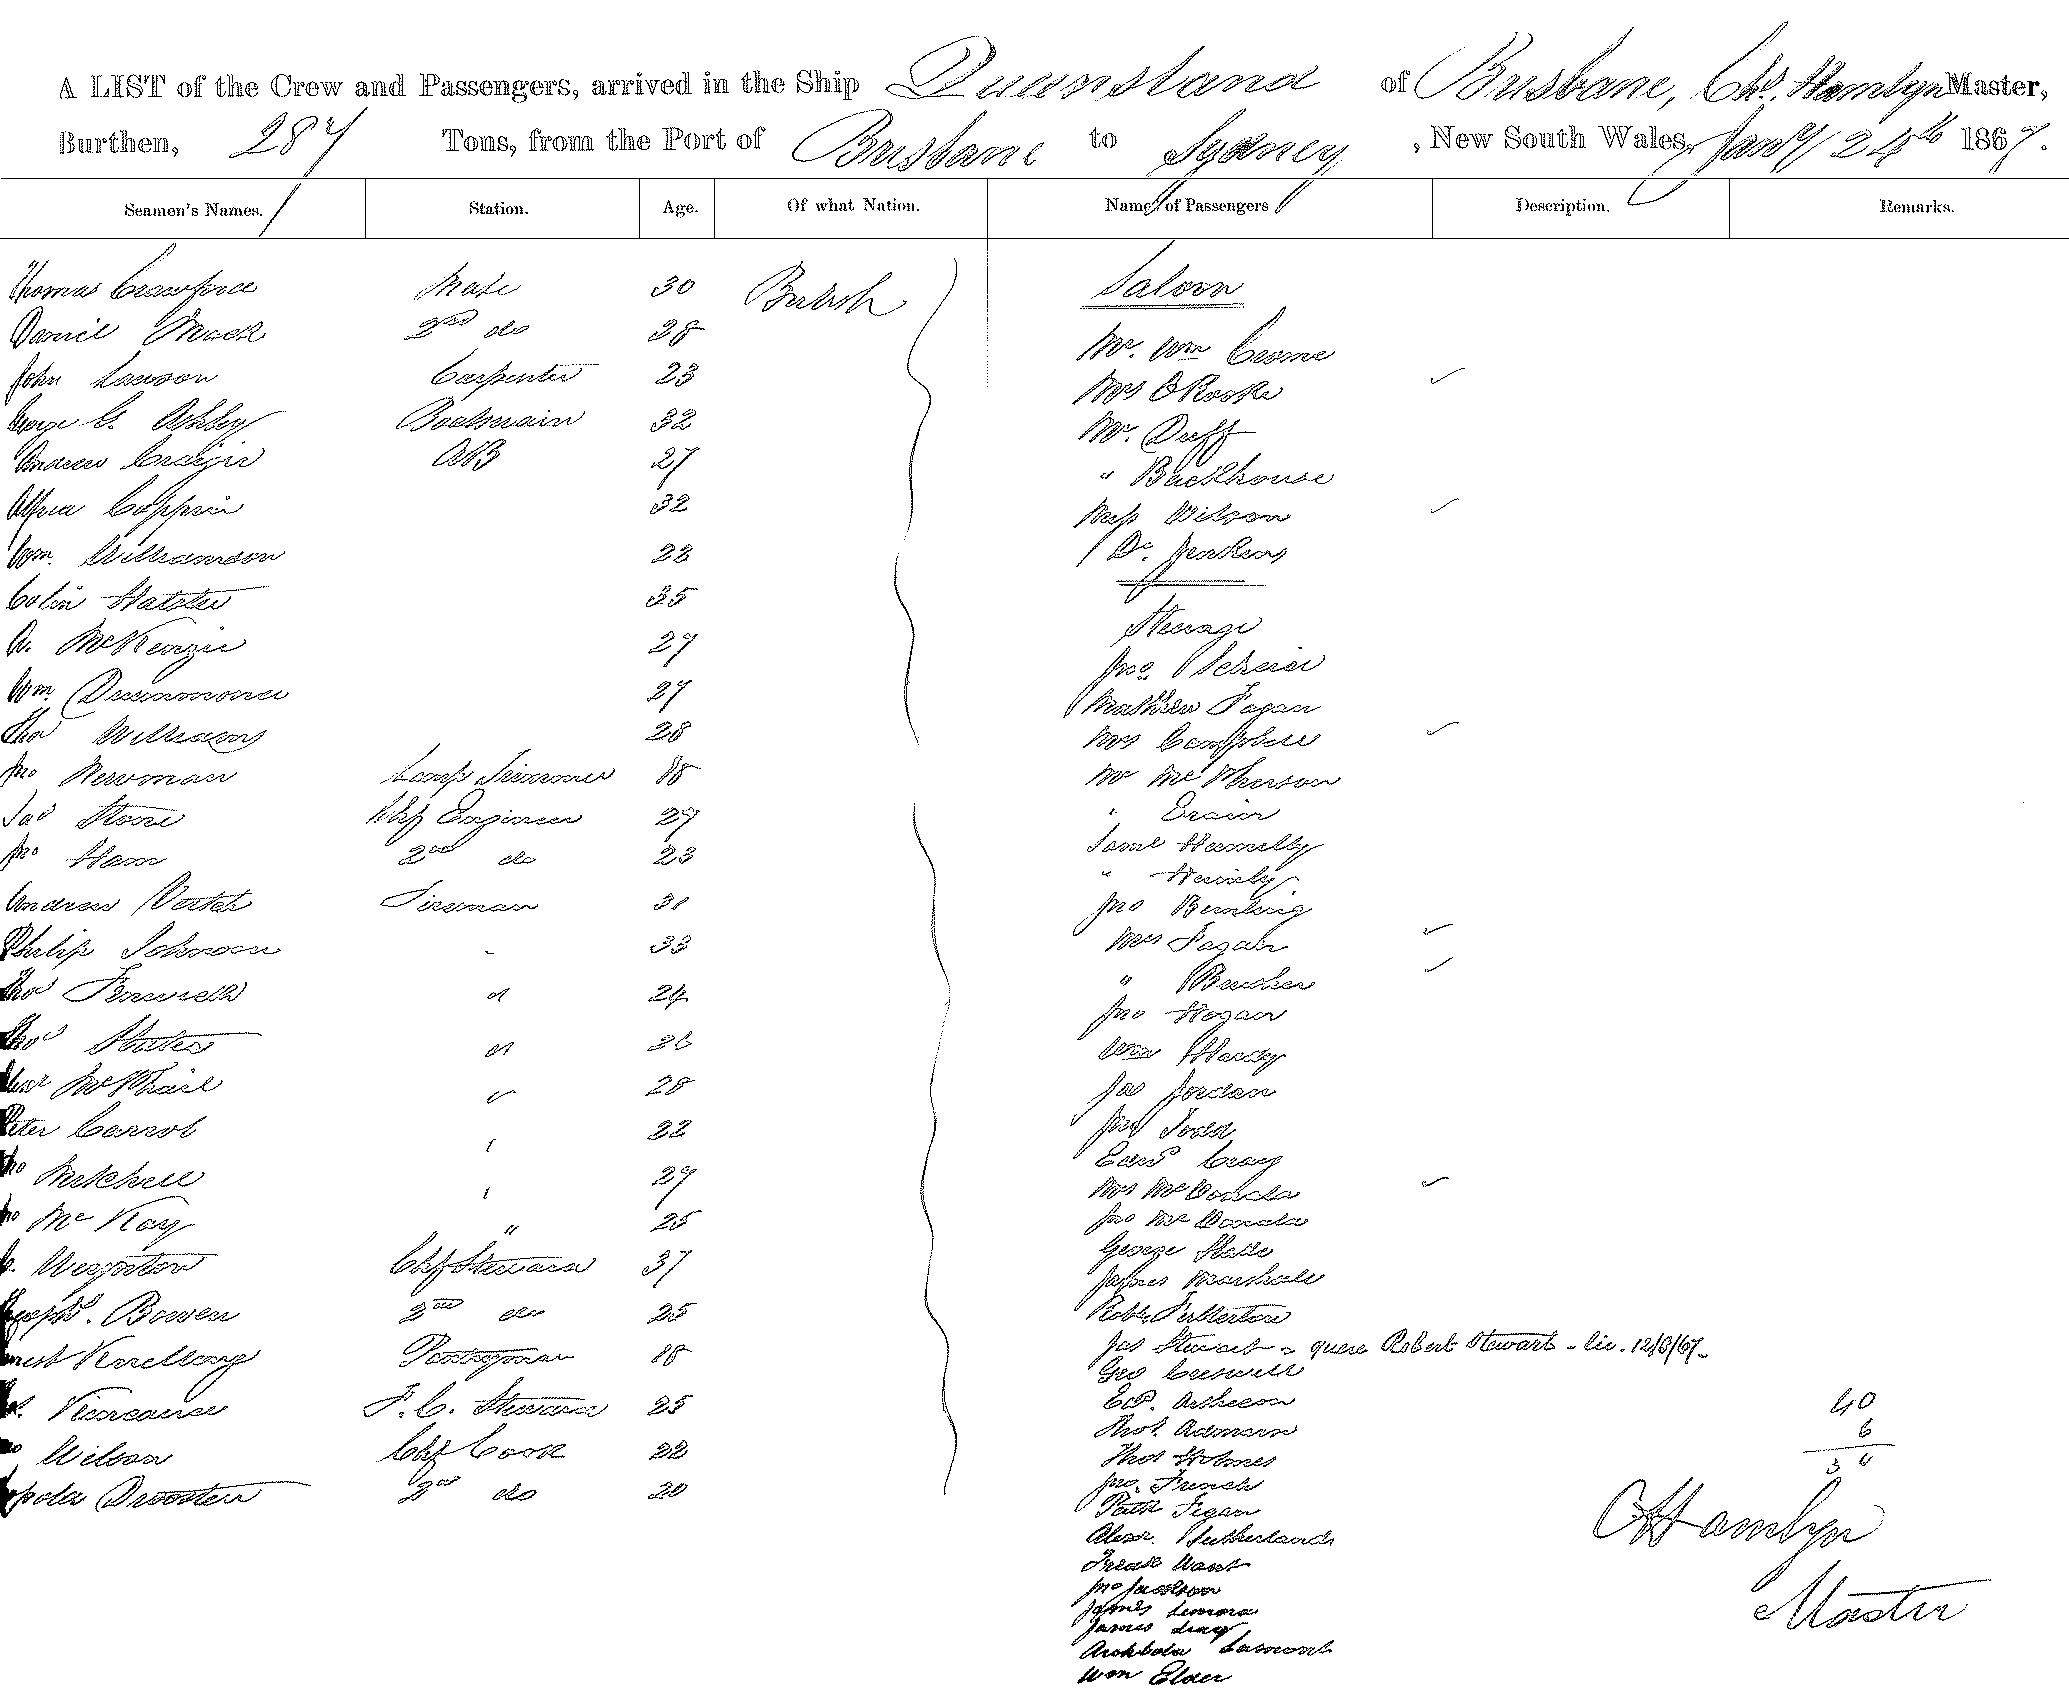 A LIST of the Crew and Passengers, arrived in the Ship Queensland of Brisbane, Chs. Hamlyn Master,
Burthen, 287 Tons, from the Port of Brisbane to Sydney, New South Wales, Jany 24th 1867.
Seamen's Names. Station. Age. Of what Nation. Names of Passengers Description. Remarks.
Thomas Crawford Mate 30 British Saloon
Daniel Mack 2nd do 28 Mr. Wm Crome
John Lawson Carpenter 23 Mrs O'Rooke
George G. Ashby Boatswain 32 Mr. Duff
Andrew Craigie AB 27 " Backhouse
Alfred Coppin 32 Miss Wilson
Wm. Williamson 22 Dr. Jenkins
Colin 35 Steerage
A. McKenzie 27 Jno.
Wm. Drummond 27 Mathew Fagan
Thos Williams 28 Mrs Campbell
Jno Newman Lamp Trimmer 18 Mr McPherson
Jas Stone Chf Engineer 29 "
Jno Ham 2nd do 23 Saml
Andrew Fireman "
Philip Johnson " 33 Jno
Thos Fenwick " 24 Mrs Fagan
Thos " "
McPhail " 28 Jno Hogan
Peter Carrol " 22 Wm Hardy
Mitchell " 29 Jas Jordan
McKay " 25 Jno Todd
Chf Steward 37 Edwd Gray
Bowen 2nd do 25 Mrs McDonald
Pantryman 18 Jno McDonald
F. C. Steward 25 George
Wilson Chf Cook 22 James Marshall
2nd do 20 Robt. Fullerton
Jas Stewart - quere Robert Stewart - lic. 12/6/67.
Geo Creswell
Ed.
Thos.
Thos Holmes
Jno. French
Patk Fegan
Alexr. Sutherland
Fredk Want
Jno Jackson
James
James
Archibald Lamont
Wm Elder
40
6
34
CHamlyn
Master